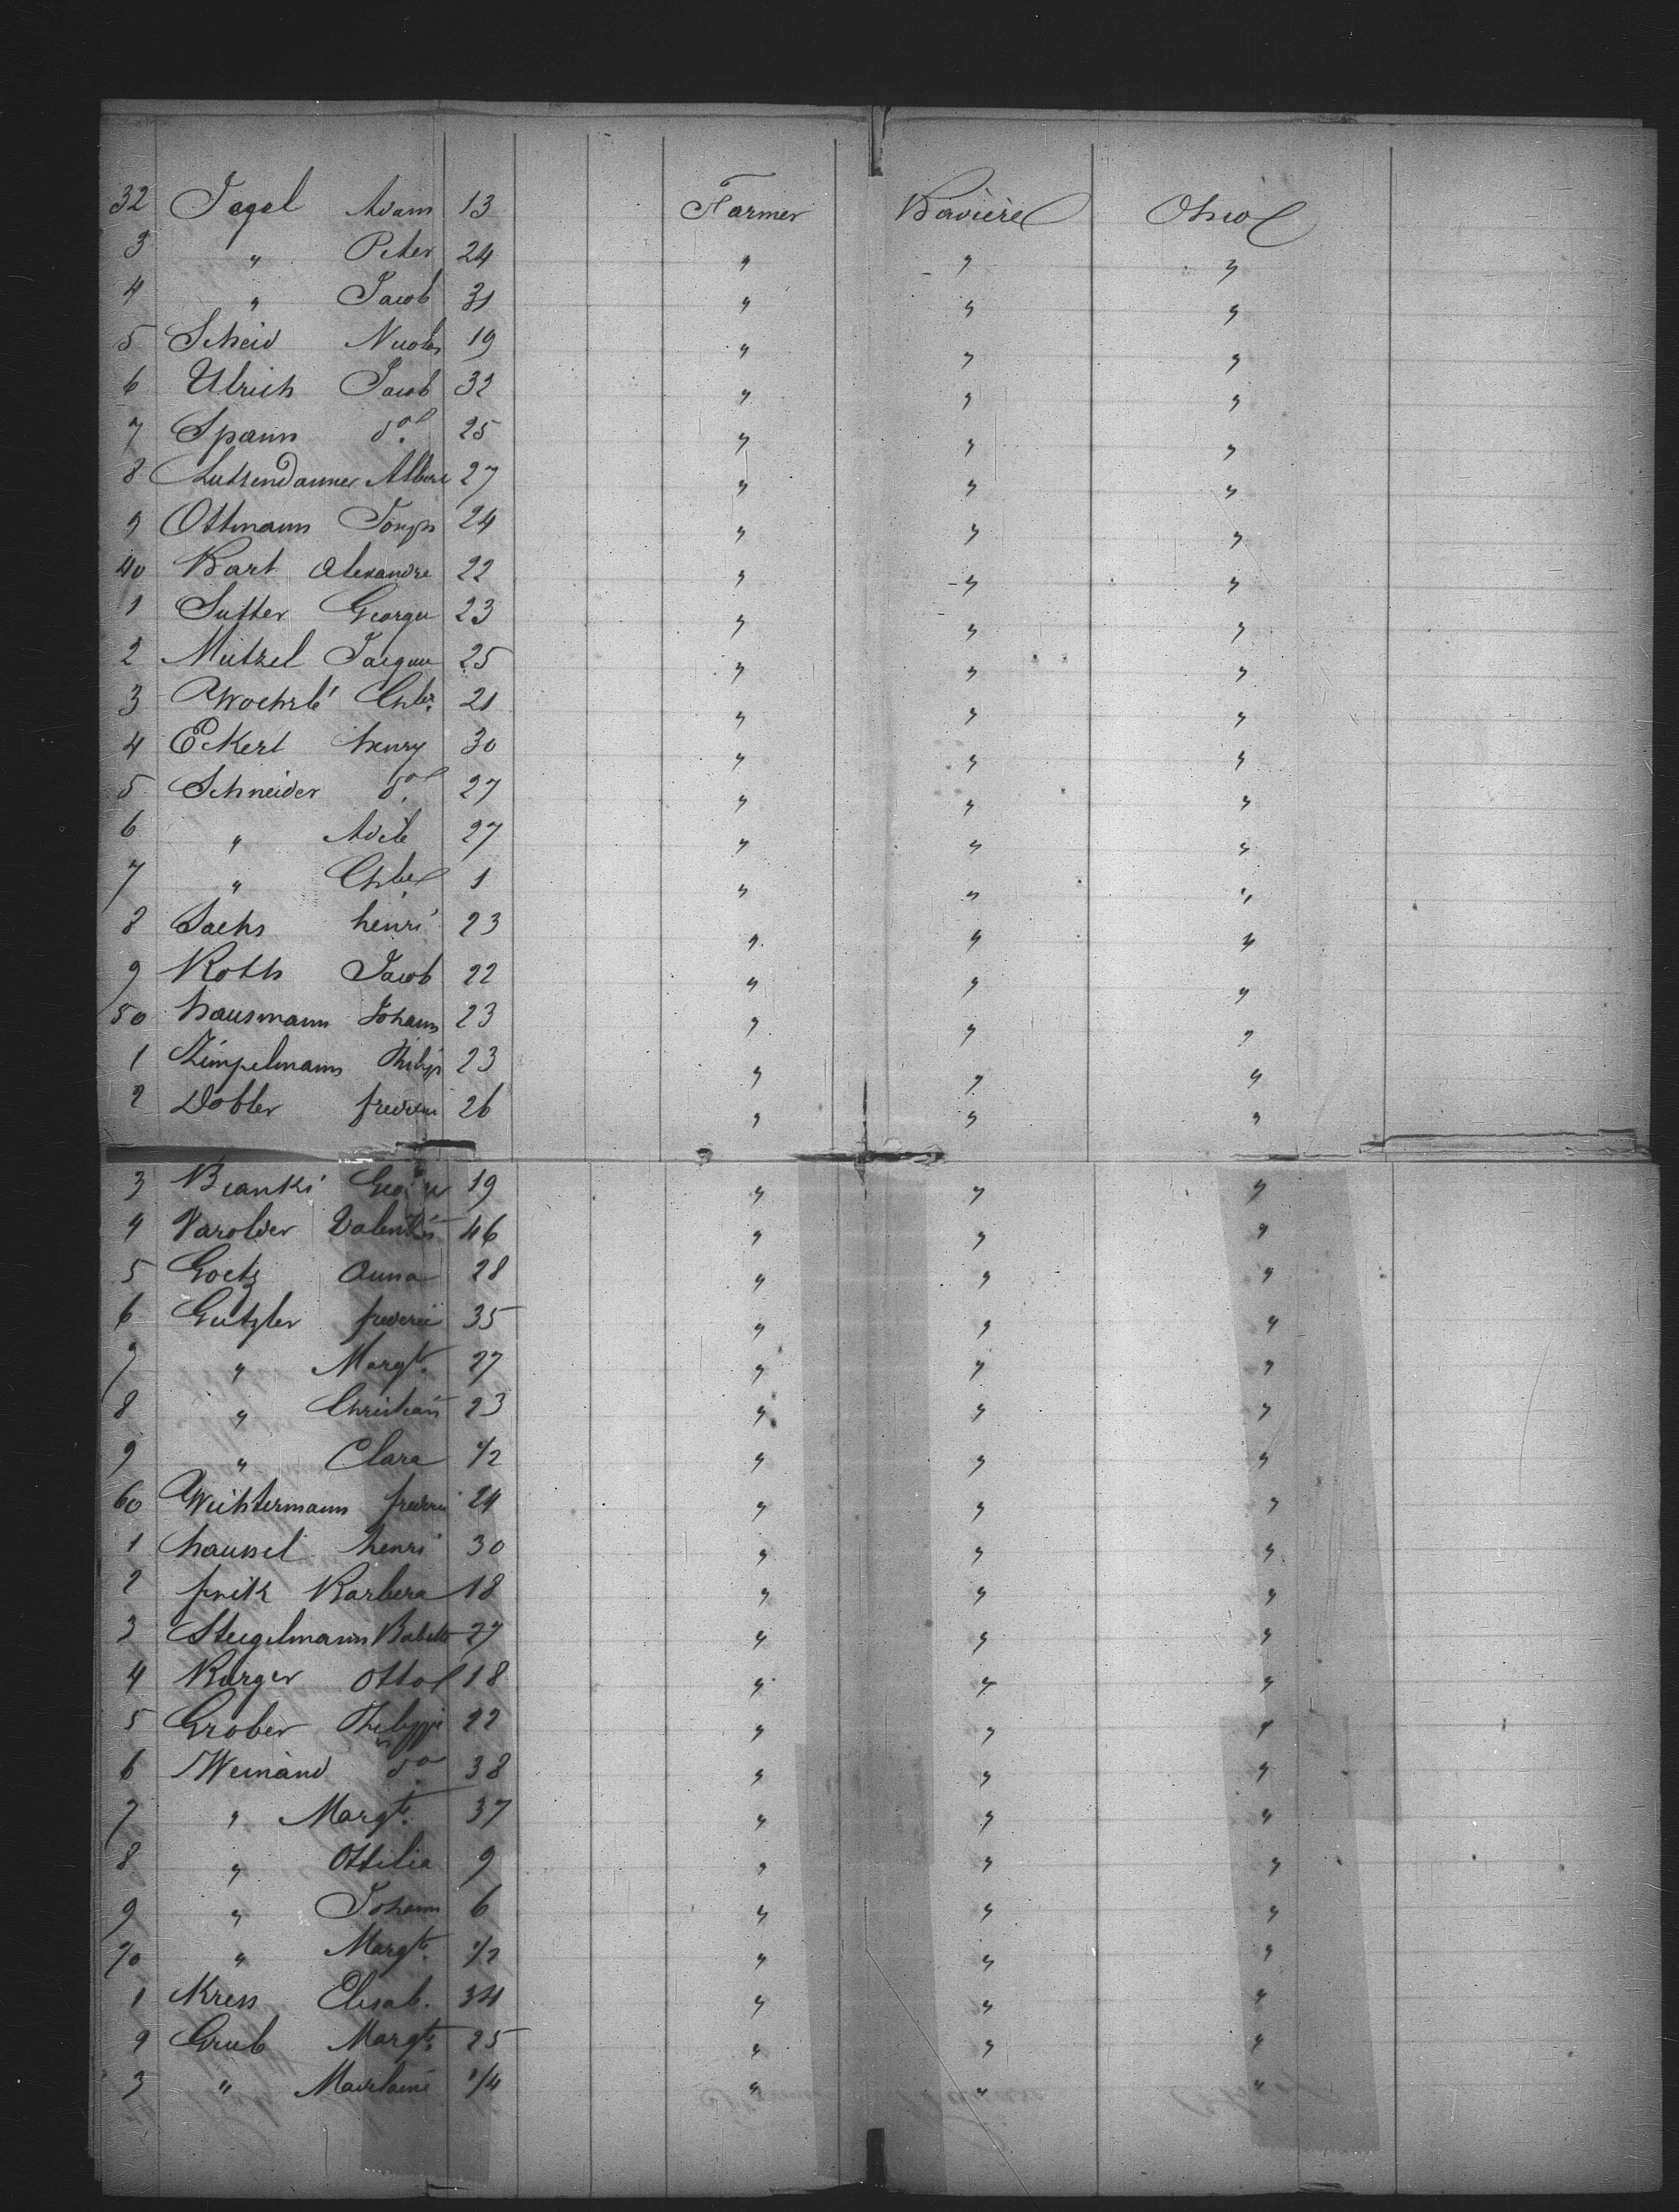 32 Jegel Adam 13 Farmer Baviere Ohio
3 " Peter 24 " " "
4 " Jacob 31 " " "
5 Scheid Nicolas 19 " " "
6 Ulrich Jacob 32 " " "
7 Spann do 25 " " "
8 27 " " "
9 Ottmann Joseph 24 " " "
40 Bart Alexandre 22 " " "
1 Sutter George 23 " " "
2 Mutzel Jacques 25 " " "
3 Woehrlé 21 " " "
4 Eckert henry 30 " " "
5 Schneider do 27 " " "
6 " Adele 27 " " "
7 " 1 " " "
8 Sachs henri 23 " " "
9 Roth Jacob 22 " " "
50 hausmann Johann 23 " " "
1 Zimpelmann Philipp 23 " " "
2 Dobler frederic 26 " " "
3 19 " " "
4 Valentin 46 " " "
5 Goetz Anna 28 " " "
6 Gutzler frederic 35 " " "
7 " Margte. 27 " " "
8 " Christian 23 " " "
9 " Clara 1/2 " " "
60 frederic 24 " " "
1 henri 30 " " "
2 Barbera 18 " " "
3 Steigelmann Babette 27 " " "
4 Otto 18 " " "
5 Grober Philippe 22 " " "
6 Weinand do 38 " " "
7 " Margte. 37 " " "
8 " Ottilia 9 " " "
9 " Johann 6 " " "
70 " Margte. 1/2 " " "
1 Kress Elisab. 34 " " "
2 Grub Margte. 25 " " "
3 " 1/4 " " "